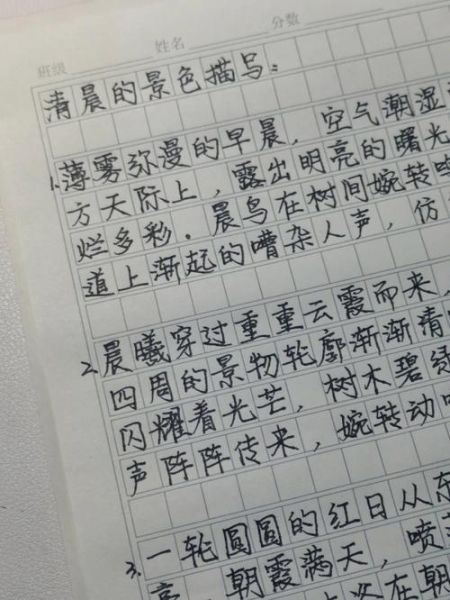 班级 姓名 分数
清晨的景色描写：
1.薄雾弥漫的早晨，空气潮湿
方天际上，露出明亮的曙光
烂多彩．晨鸟在树间婉转
道上渐起的嘈杂人声，仿
2.晨曦穿过重重云霞而来，
四周的景物轮廓渐渐清
闪耀着光芒，树木碧绿
声阵阵传来，婉转动
3.一轮圆圆的红日从东
朝霞满天，喷